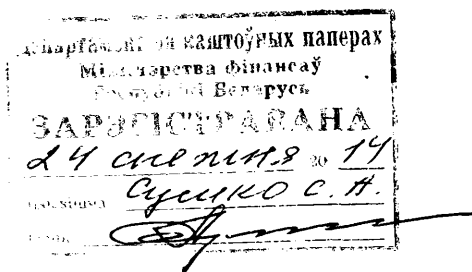 Дэпартамент па каштоўных паперах
Міністэрства фінансаў
Рэспублікі Беларусь
ЗАРЭГІСТРАВАНА
24 снежня 20 14
Сушко С. А.